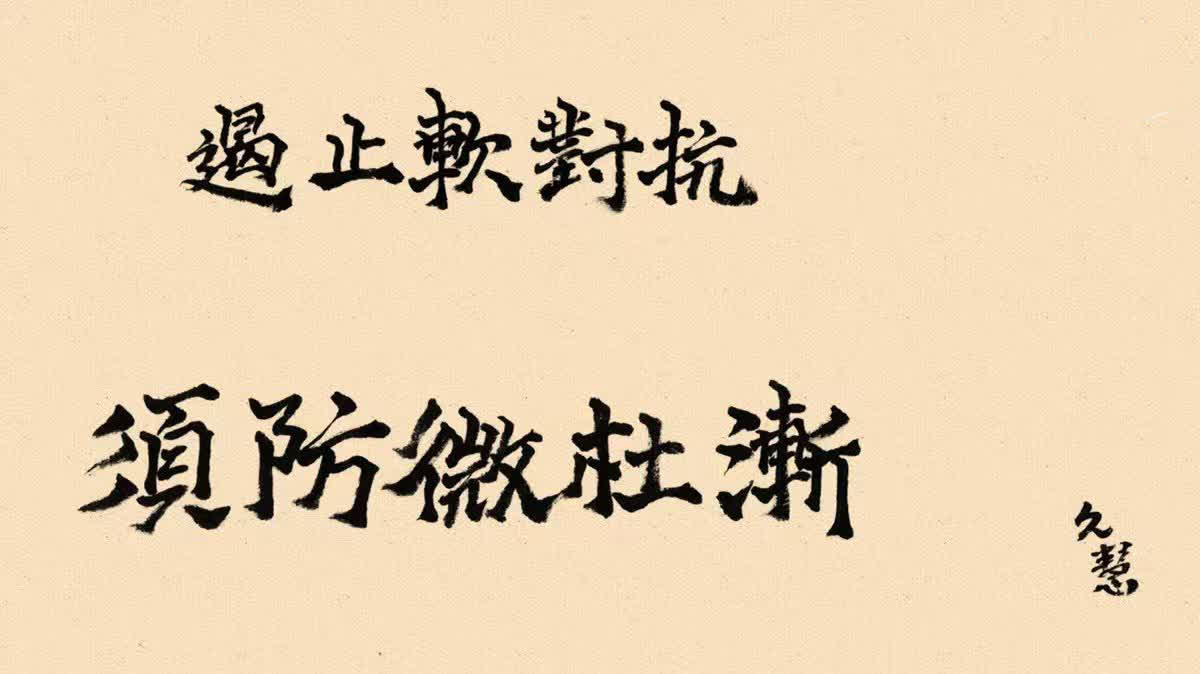 遏止軟對抗
須防微杜漸
久慧